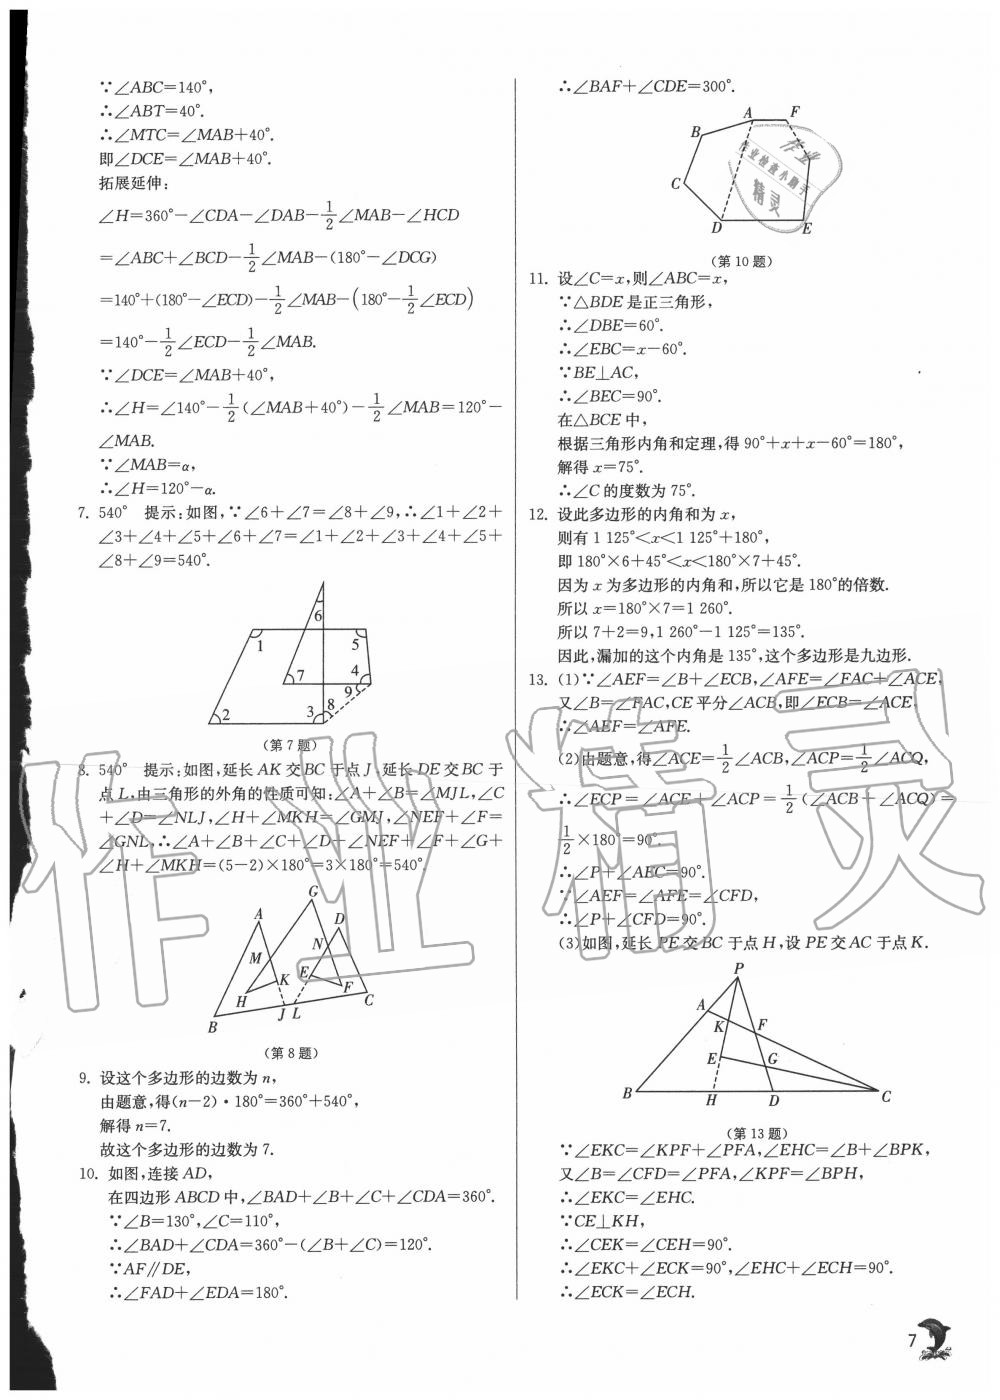 ∵∠ABC=140°,
∴∠ABT=40°.
∴∠MTC=∠MAB+40°.
即∠DCE=∠MAB+40°.
拓展延伸:
∠H=360°-∠CDA-∠DAB-1/2∠MAB-∠HCD
=∠ABC+∠BCD-1/2∠MAB-(180°-∠DCG)
=140°+(180°-∠ECD)-1/2∠MAB-(180°-1/2∠ECD)
=140°-1/2∠ECD-1/2∠MAB.
∵∠DCE=∠MAB+40°,
∴∠H=∠140°-1/2(∠MAB+40°)-1/2∠MAB=120°-
∠MAB.
∵∠MAB=α,
∴∠H=120°-α.
7. 540° 提示:如图,∵∠6+∠7=∠8+∠9,∴∠1+∠2+
∠3+∠4+∠5+∠6+∠7=∠1+∠2+∠3+∠4+∠5+
∠8+∠9=540°.
6
1 5
7 4
9
2 3 8
(第7题)
8. 540° 提示:如图,延长AK交BC于点J,延长DE交BC于
点L,由三角形的外角的性质可知:∠A+∠B=∠MJL,∠C
+∠D=∠NLJ,∠H+∠MKH=∠GMJ,∠NEF+∠F=
∠GNL,∴∠A+∠B+∠C+∠D+∠NEF+∠F+∠G+
∠H+∠MKH=(5-2)×180°=3×180°=540°.
G
A D
N
M
K E
H F C
B J L
(第8题)
9. 设这个多边形的边数为n,
由题意,得(n-2)·180°=360°+540°,
解得n=7.
故这个多边形的边数为7.
10. 如图,连接AD,
在四边形ABCD中,∠BAD+∠B+∠C+∠CDA=360°.
∵∠B=130°,∠C=110°,
∴∠BAD+∠CDA=360°-(∠B+∠C)=120°.
∵AF∥DE,
∴∠FAD+∠EDA=180°.
∴∠BAF+∠CDE=300°.
A F
B
C
D E
作业
作业检查小助手
精灵
(第10题)
11. 设∠C=x,则∠ABC=x,
∵△BDE是正三角形,
∴∠DBE=60°.
∴∠EBC=x-60°.
∵BE⊥AC,
∴∠BEC=90°.
在△BCE中,
根据三角形内角和定理,得90°+x+x-60°=180°,
解得x=75°.
∴∠C的度数为75°.
12. 设此多边形的内角和为x,
则有1 125°<x<1 125°+180°,
即180°×6+45°<x<180°×7+45°.
因为x为多边形的内角和,所以它是180°的倍数.
所以x=180°×7=1 260°.
所以7+2=9,1 260°-1 125°=135°.
因此,漏加的这个内角是135°,这个多边形是九边形.
13. (1)∵∠AEF=∠B+∠ECB,∠AFE=∠FAC+∠ACE,
又∠B=∠FAC,CE平分∠ACB,即∠ECB=∠ACE,
∴∠AEF=∠AFE.
(2)由题意,得∠ACE=1/2∠ACB,∠ACP=1/2∠ACQ,
∴∠ECP=∠ACE+∠ACP=1/2(∠ACB+∠ACQ)=
1/2×180°=90°.
∴∠P+∠AEC=90°.
∵∠AEF=∠AFE=∠CFD,
∴∠P+∠CFD=90°.
(3)如图,延长PE交BC于点H,设PE交AC于点K.
P
A
K F
E G
B H D C
(第13题)
∵∠EKC=∠KPF+∠PFA,∠EHC=∠B+∠BPK,
又∠B=∠CFD=∠PFA,∠KPF=∠BPH,
∴∠EKC=∠EHC.
∵CE⊥KH,
∴∠CEK=∠CEH=90°.
∴∠EKC+∠ECK=90°,∠EHC+∠ECH=90°.
∴∠ECK=∠ECH.
7
作业精灵